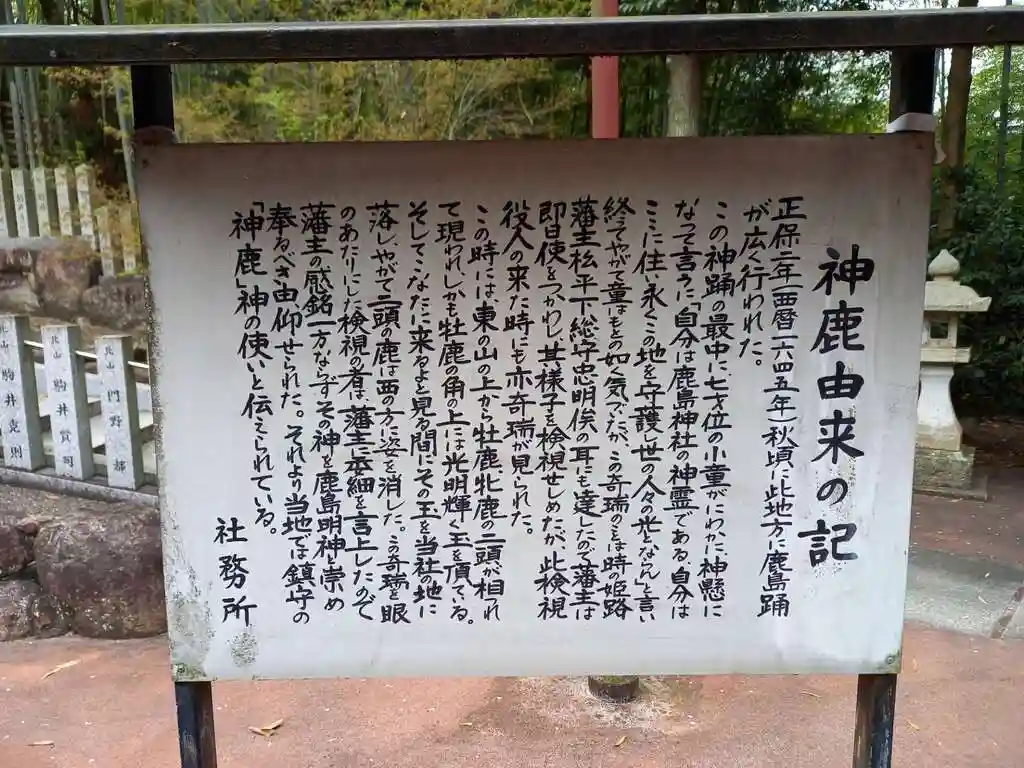 神鹿由来の記
正保二年(西暦一六四五年)秋頃に此地方に鹿島踊
が広く行われた。
この神踊の最中に七才位の小童がにわかに神懸に
なって言うに「自分は鹿島神社の神霊である、自分は
ここに住み永くこの地を守護し世の人々の光とならん」と言い
終てやがて童はもとの如く気づいたが、この奇瑞のことは時の姫路
藩主松平下総守忠明侯の耳にも達したので藩主は
即日使をつかわし其様子を検視せしめたが、此検視
役人の来た時にも亦奇瑞が見られた。
この時には、東の山の上から牡鹿牝鹿の二頭が相つれ
て現われ、しかも牡鹿の角の上には光明輝く玉を頂ている。
そしてこなたに来るよと見る間にその玉を当社の地に
落し、やがて二頭の鹿は西の方に姿を消した。この奇瑞を眼
のあたりにした検視の者は、藩主に委細を言上したので
藩主の感銘一方ならずその神を鹿島明神と崇め
奉るべき由仰せられた。それより当地では鎮守の
「神鹿」神の使いと伝えられている。
社務所
北山 駒井克則
北山 駒井賀町
北山 門野